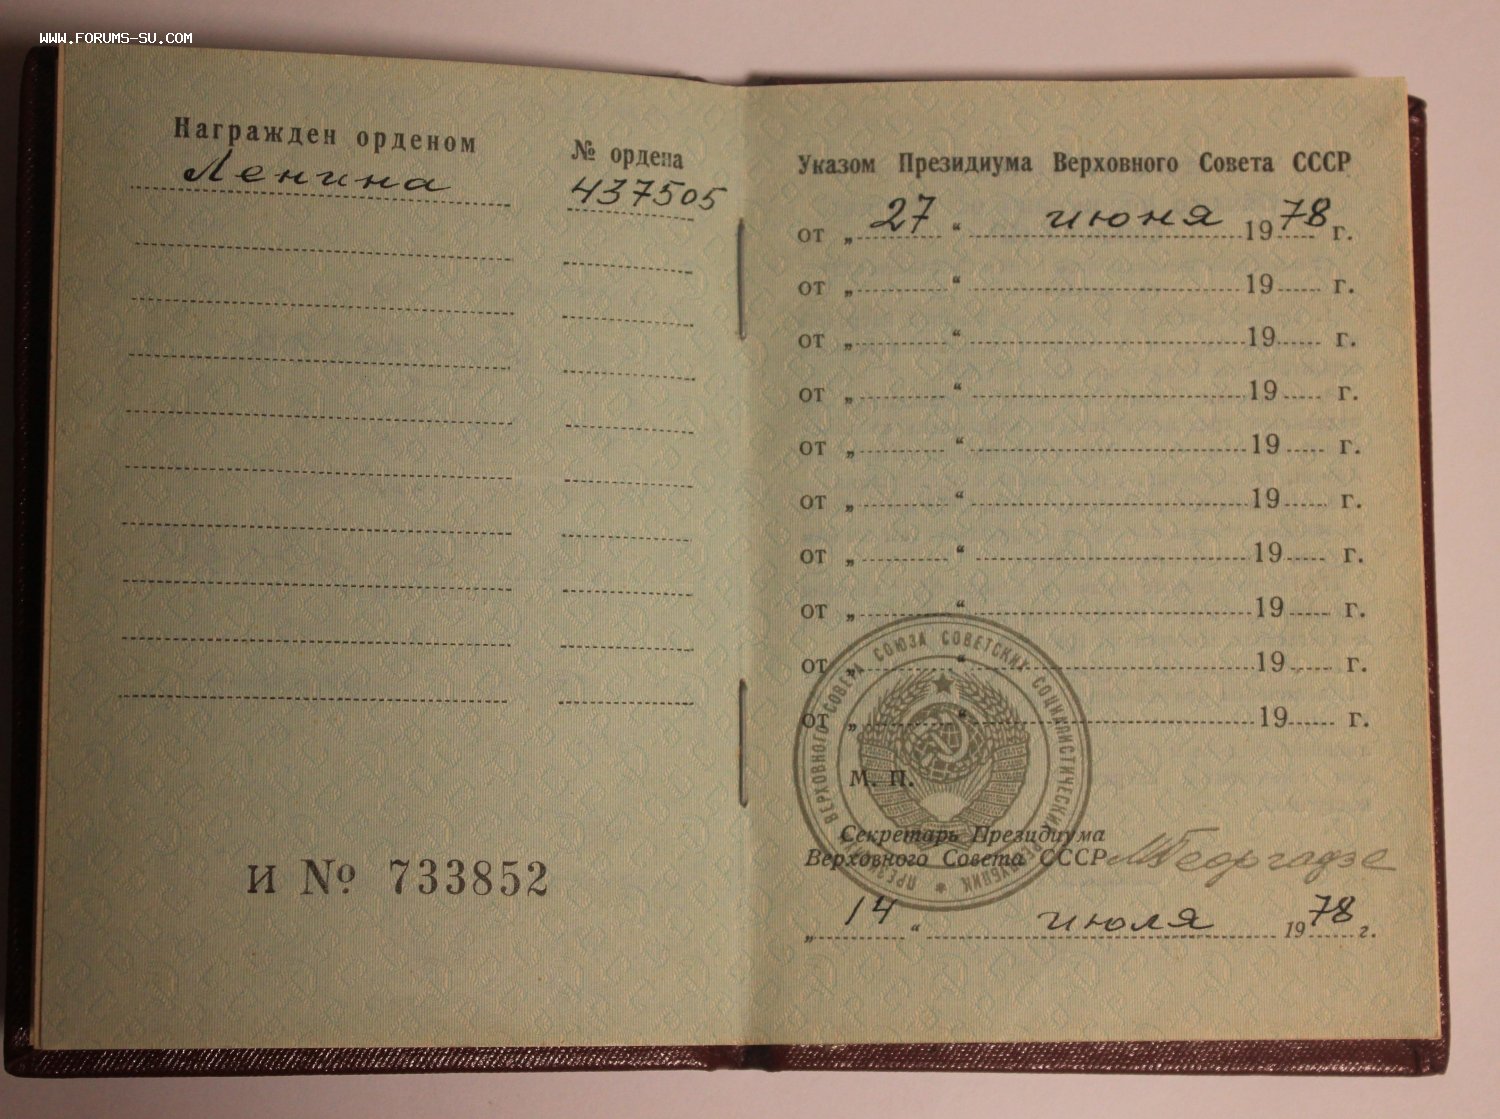 www.forums-su.com
Награжден орденом
№ ордена
Ленина
437505
И № 733852
Указом Президиума Верховного Совета СССР
от „ 27 “ июня 1978 г.
от „ “ 19 г.
от „ “ 19 г.
от „ “ 19 г.
от „ “ 19 г.
от „ “ 19 г.
от „ “ 19 г.
от „ “ 19 г.
от „ “ 19 г.
от „ “ 19 г.
ПРЕЗИДИУМ ВЕРХОВНОГО СОВЕТА СОЮЗА СОВЕТСКИХ СОЦИАЛИСТИЧЕСКИХ РЕСПУБЛИК
М. П.
Секретарь Президиума
Верховного Совета СССР МГеоргадзе
„ 14 “ июля 1978 г.